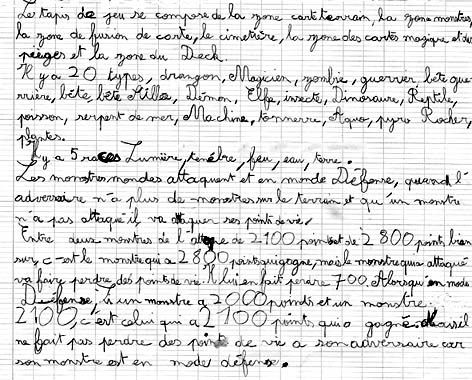 Le tapis de jeu se compose de la zone carte terrain, la zone monstres
la zone de fusion de carte, le cimetière, la zone des cartes magique et des
pièges et la zone du Deck.
Il y a 20 types, drangon, Magicien, zonbie, guerrier, bête gue-
rrière, bête, bête Aillée, Démon, Elfe, insecte, Dinosaure, Reptile,
poisson, serpent de mer, Machine, tonnerre, Aquo, pyro Rocher,
plantes.
Il y a 5 races Lumière, tenèbre, feu, eau, terre.
Les monstres mondes attaquent et en monde Défense, quand l'
adversaire n'a plus de monstres sur le terrain et qu'un monstre
n'a pas attaqué il va attaquer ses point de vie,
Entre deux monstres de l'attaque de 2100 points et de 2800 points, bien
sur, c'est le monstre qui a 2800 points qui gogne, mais le monstre qui a attaqué
va faire perdre des points de vie. Il lui en fait perdre 700. Alors qu'en mode
Défense, si un monstre a 2000 points et un monstre
2100, c'est celui qui a 2100 points qui a gogné. il
ne fait pas perdre des points de vie a son adversaire car
son monstre est en mode défense.